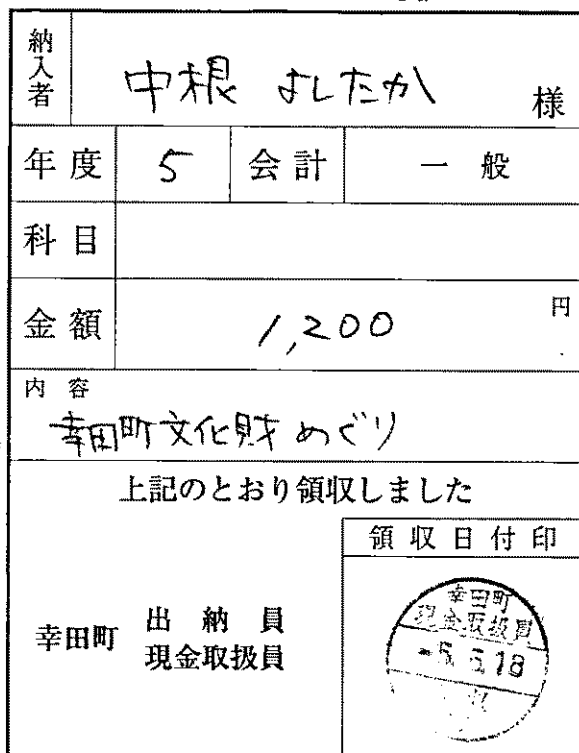 納入者 中根 よしたか 様
年度 5 会計 一般
科目
金額 1,200 円
内容
幸田町文化財めぐり
上記のとおり領収しました
領収日付印
幸田町 出納員
現金取扱員
幸田町
現金取扱員
-5.5.18